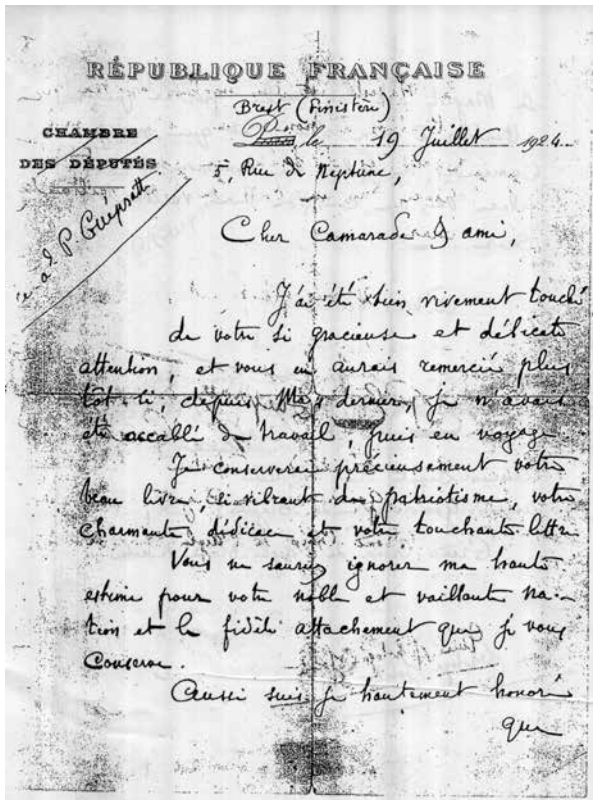 RÉPUBLIQUE FRANÇAISE
Brest (Finistère)
CHAMBRE
DES DÉPUTÉS
Paris, le 19 Juillet 1924
5, Rue de Neptune,
P. Guépratte
Cher Camarade & ami,
J'ai été bien vivement touché
de votre si gracieuse et délicate
attention, et vous en aurais remercié plus
tôt si, depuis Mai dernier, je n'avais
été accablé de travail, puis en voyage
Je conserverai précieusement votre
beau livre, si vibrant de patriotisme, votre
charmante dédicace et votre touchante lettre
Vous ne sauriez ignorer ma haute
estime pour votre noble et vaillante na-
tion et le fidèle attachement que je vous
conserve.
Aussi suis je hautement honoré
que